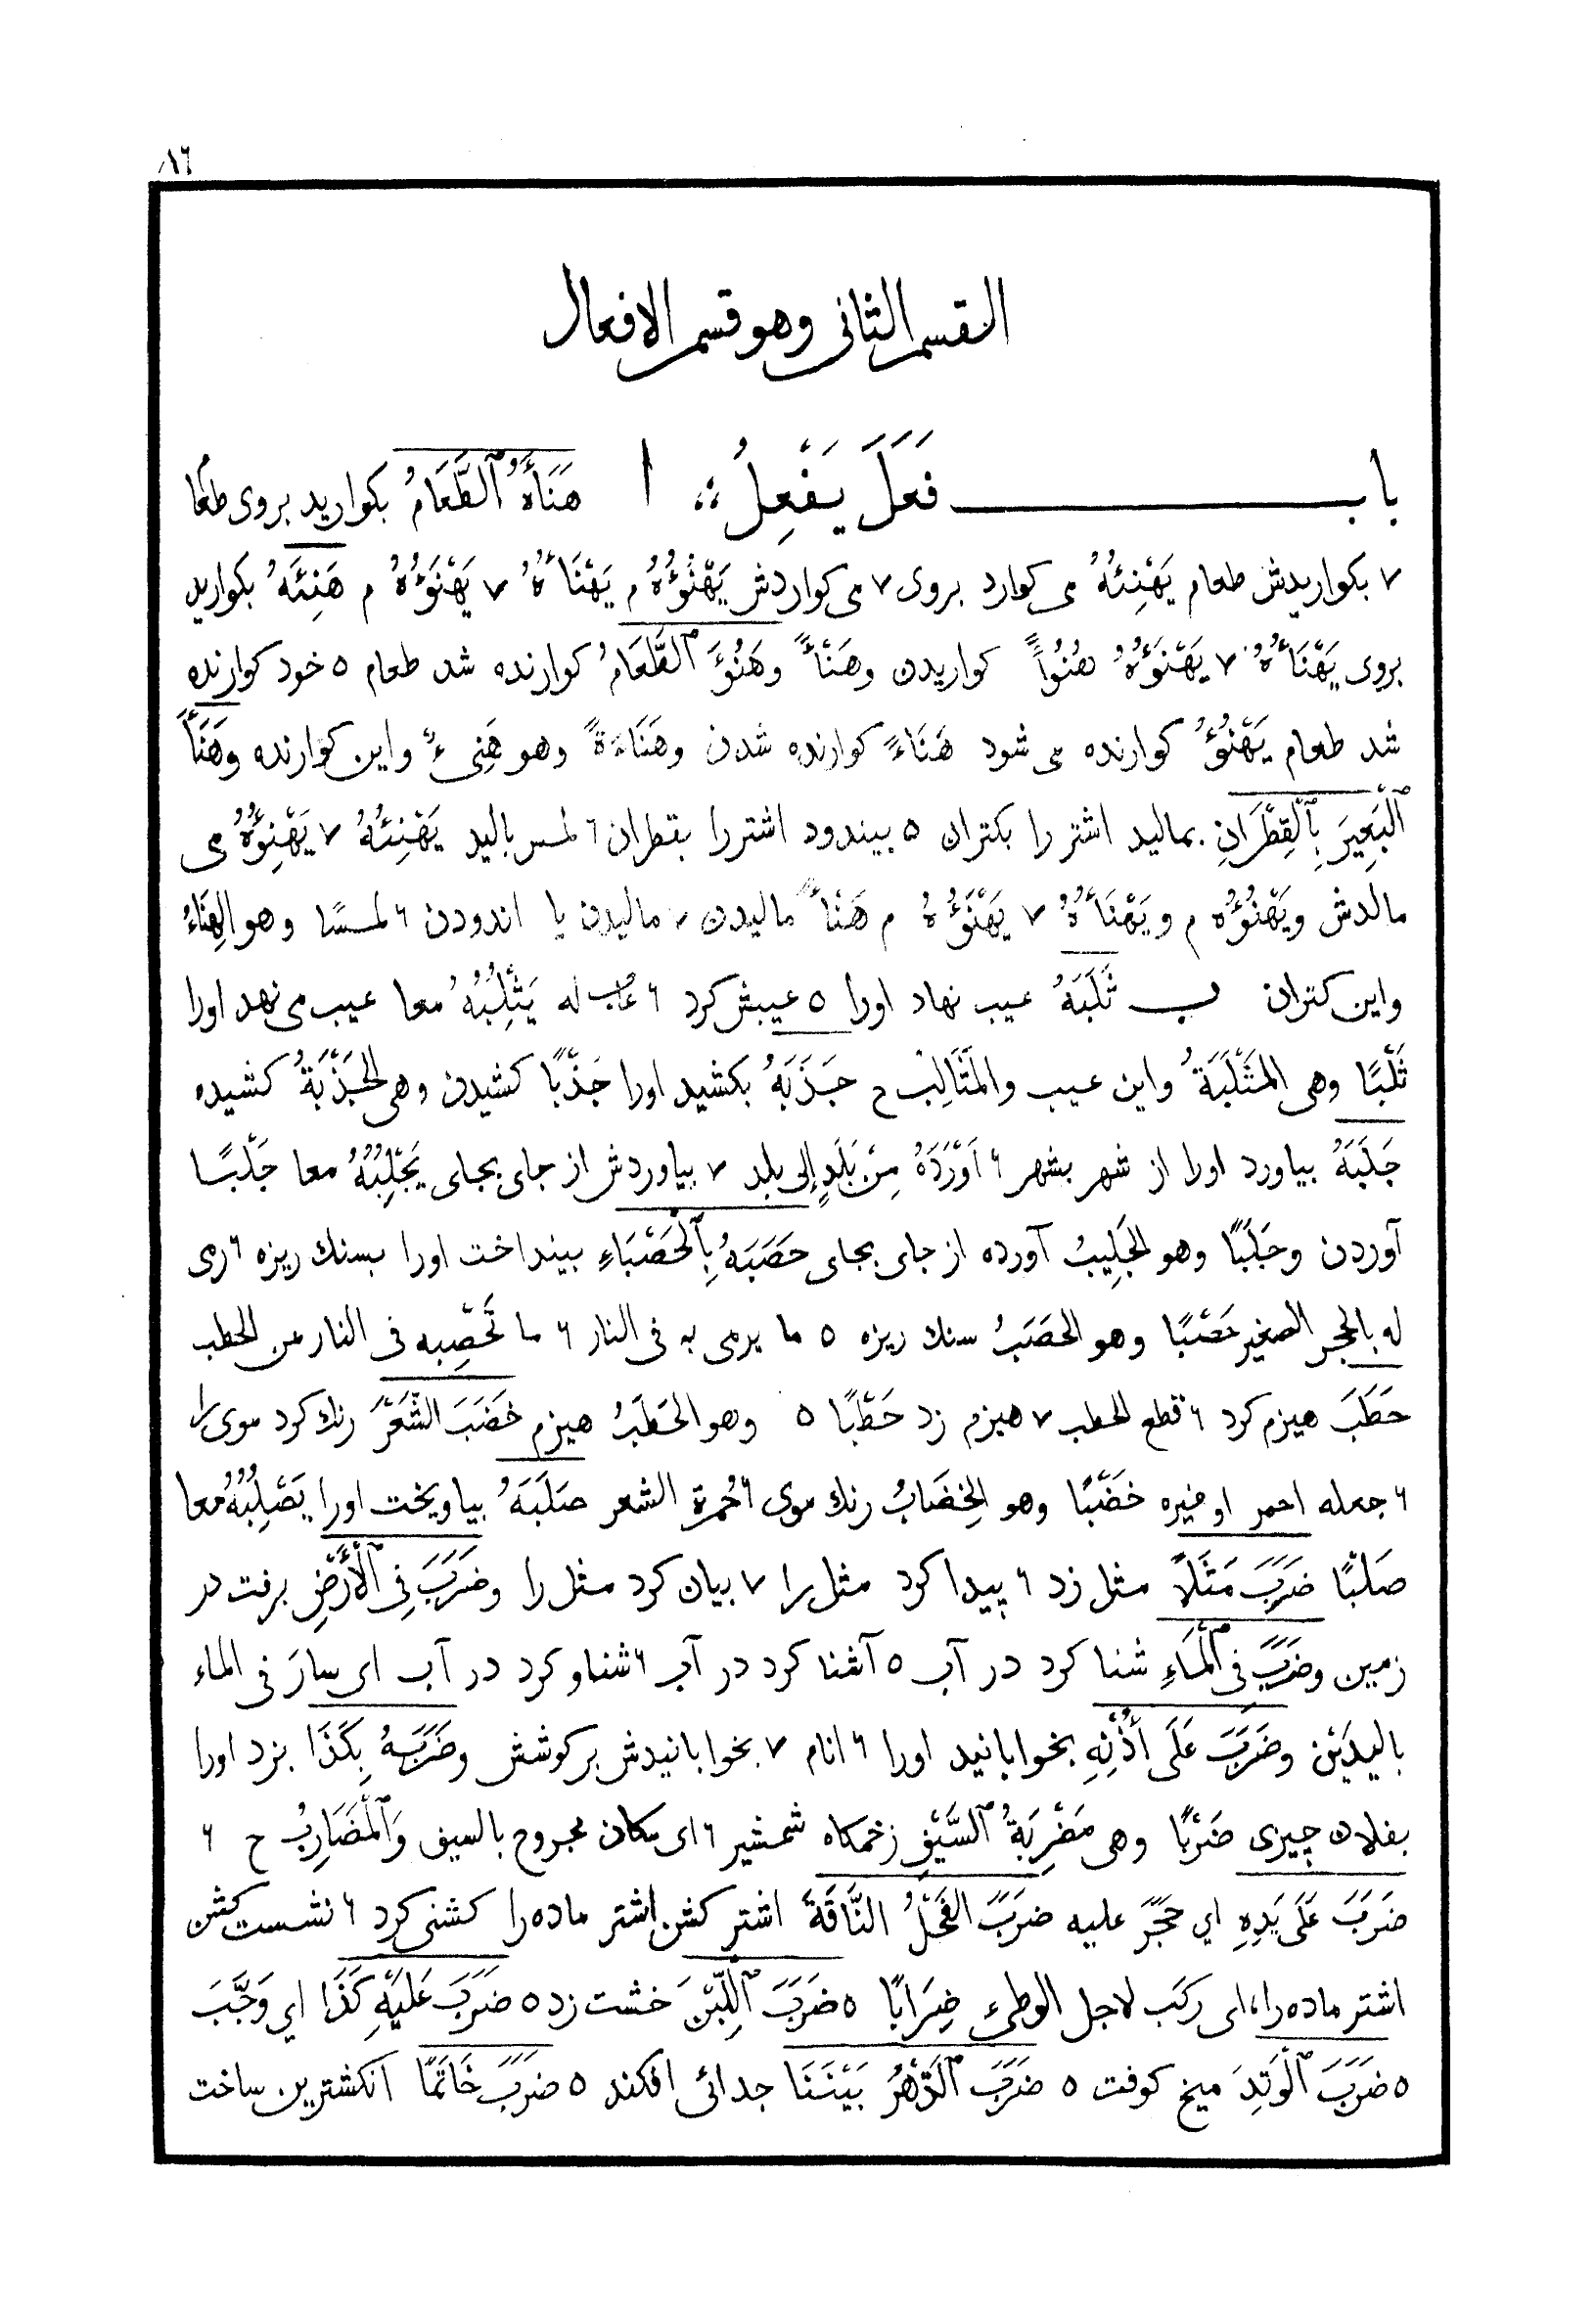 ٨٦
القسم الثانى وهو قسم الافعال
باب فَعَلَ يَفْعِلُ ؞ ا هَنَأَهُ ٱلطَّعَامُ بكواريد بروى طعا
٧ بكواريدش طعام يَهْنِئُهُ مى كوارد بروى ٧ مى كواردش يَهْنُؤُهُ م يَهْنَأُهُ ٧ يَهْنَؤُهُ م هَنِئَهُ بكواريد
بروى يَهْنَأُهُ ٧ يَهْنَؤُهُ هُنُوأً كواريدن وهَنْأً وهَنُؤَ ٱلطَّعَامُ كوارنده شد طعام ٥ خود كوارنده
شد طعام يَهْنُؤُ كوارنده مى شود هَنَاءً كوارنده شدن وهَنَاءَةً وهو هَنِىءٌ واين كوارنده وهَنَأَ
ٱلْبَعِيرَ بِٱلْقِطْرَانِ بماليد اشتر را بكتران ٥ بيندود اشتررا بقطران ٦ لمس باليد يَهْنِئُهُ ٧ يَهْنِؤُهُ مى
مالدش ويَهْنُؤُه م ويَهْنَأُهُ ٧ يَهْنَؤُهُ م هَنْأً ماليدن ، ماليدن يا اندودن ٦ لمسًا وهو الهِنَاءُ
واين كتران ب ثَلَبَهُ عيب نهاد اورا ٥ عيبش كرد ٦ عاب له يَثْلِبُهُ معا عيب مى نهد اورا
ثَلْبًا وهى المَثْلَبَةُ واين عيب والمَثَالِبُ ح جَذَبَهُ بكشيد اورا جَذْبًا كشيدن وهى الجَذْبَةُ كشيده
جَلَبَهُ بياورد اورا از شهر بشهر ٦ اَوْرَدَهُ مِنْ بَلَدٍ إلى بلد ٧ بياوردش از جاى بجاى يَجْلِبُهُ معا جَلْبًا
آوردن وجَلَبًا وهو الجَلِيبُ آورده از جاى بجاى حَصَبَهُ بِٱلْحَصْبَاءِ بينداخت اورا بسنك ريزه ٦ رمى
له بالحجر الصغير حَصْبًا وهو الحَصَبُ سنك ريزه ٥ ما يرمى به فى النار ٦ ما تَحْصِبه فى النار من الحطب
حَطَبَ هيزم كرد ٦ قطع الحطب ٧ هيزم زد حَطْبًا ٥ وهو الحَطَبُ هيزم خَضَبَ الشَّعَرْ رنك كرد موى را
٦ جعله احمر او غيره خَضْبًا وهو الخِضَابُ رنك موى ٦ حُمرة الشعر صَلَبَهُ بياويخت اورا يَصْلِبُهُ معا
صَلْبًا ضَرَبَ مَثَلاً مثل زد ٦ پيدا كرد مثل را ٧ بيان كرد مثل را وضَرَبَ فِى ٱلْأَرْضِ برفت در
زمين وضَرَبَ فى ٱلْمَاءِ شنا كرد در آب ٥ آشنا كرد در آب ٦ شناو كرد در آب اى سارَ فى الماء
باليدَيْن وضَرَبَ عَلَى أُذْنِهِ بخوابانيد اورا ٦ انام ٧ بخوابانيدش بر كوشش وضَرَبَهُ بِكَذَا بزد اورا
بفلان چيزى ضَرْبًا وهى مَضْرِبَةُ ٱلسَّيْفِ زخمكاه شمشير ٦ اى مكان مجروح بالسيف وَٱلْمَضَارِبُ ح ٦
ضَرَبَ عَلَى يَدِهِ اي حَجَرَ عليه ضَرَبَ الفَحْلُ النَّاقَةَ اشتر كشن اشتر ماده را كشنى كرد ٦ نشست كشن
اشتر ماده را، اى ركب لاجل الوطىء ضِرَابًا ٥ ضَرَبَ ٱللَّبِنَ خشت زد ٥ ضَرَبَ عَلَيْهِ كَذَا اي وَجَّبَ
٥ ضَرَبَ ٱلْوَتِدَ ميخ كوفت ٥ ضَرَبَ ٱلدَّهْرُ بَيْنَنَا جدائى افكند ٥ ضَرَبَ خَاتَمًا انكشترين ساخت